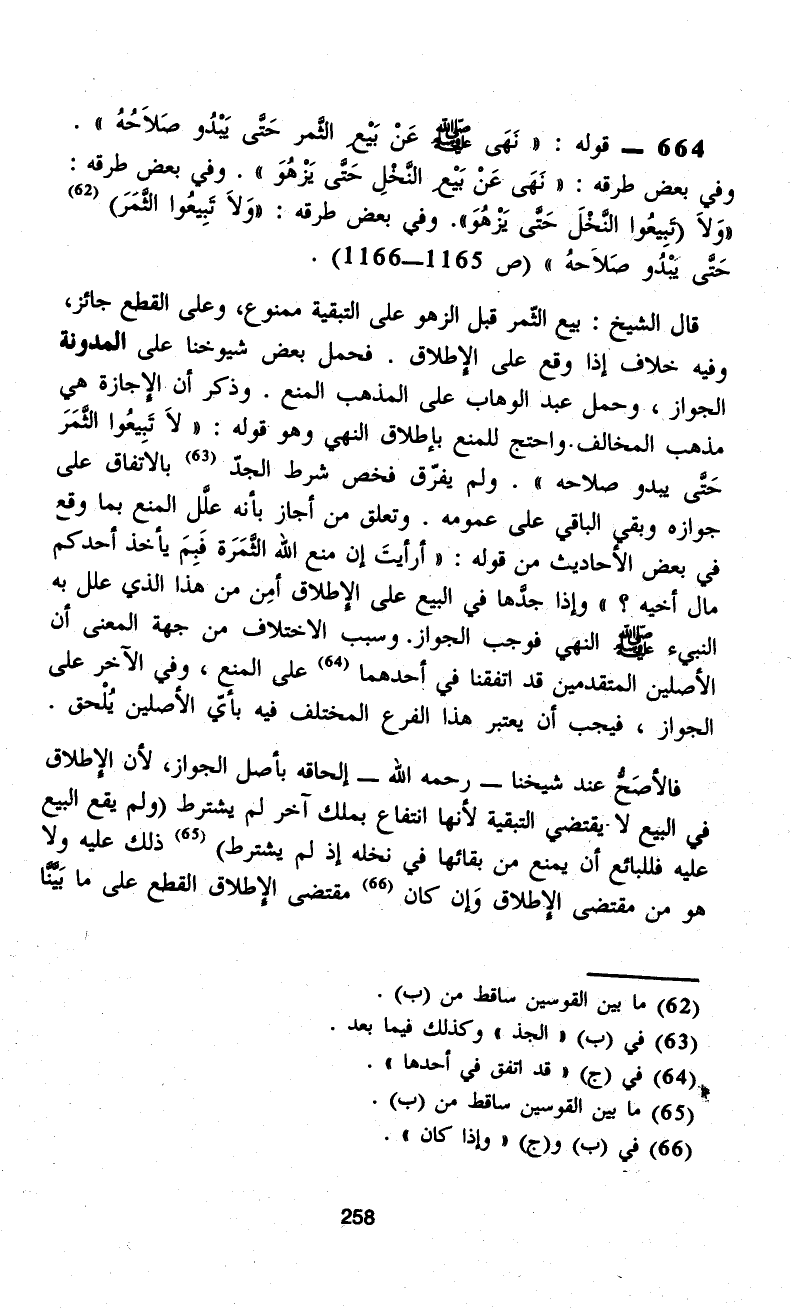 664 — قوله : « نَهَى ﷺ عَنْ بَيْعِ الثَّمر حَتَّى يَبْدُو صَلاَحُهُ » .
وفي بعض طرقه : « نَهَى عَنْ بَيْعِ النَّخْلِ حَتَّى يَزْهُوَ » . وفي بعض طرقه :
«وَلاَ (تَبِيعُوا النَّخْلَ حَتَّى يَزْهُوَ». وفي بعض طرقه : «وَلاَ تَبِيعُوا الثَّمَرَ) (62)
حَتَّى يَبْدُو صَلاَحهُ » (ص 1165—1166) .
قال الشيخ : بيع الثّمر قبل الزهو على التبقية ممنوع، وعلى القطع جائز،
وفيه خلاف إذا وقع على الإطلاق . فحمل بعض شيوخنا على المدونة
الجواز ، وحمل عبد الوهاب على المذهب المنع . وذكر أن الإجازة هي
مذهب المخالف.واحتج للمنع بإطلاق النهي وهو قوله : « لاَ تَبِيعُوا الثَّمَرَ
حَتَّى يبدو صلاحه » . ولم يفرّق فخص شرط الجدّ (63) بالاتفاق على
جوازه وبقي الباقي على عمومه . وتعلق من أجاز بأنه علَّل المنع بما وقع
في بعض الأحاديث من قوله : « أرأيتَ إن منع الله الثَّمَرَة فَبِمَ يأخذ أحدكم
مال أخيه ؟ » وإذا جدَّها في البيع على الإطلاق أمِن من هذا الذي علل به
النبيء ﷺ النهي فوجب الجواز. وسبب الاختلاف من جهة المعنى أن
الأصلين المتقدمين قد اتفقنا في أحدهما (64) على المنع ، وفي الآخر على
الجواز ، فيجب أن يعتبر هذا الفرع المختلف فيه بأيّ الأصلين يُلْحق .
فالأصَحُّ عند شيخنا — رحمه الله — إلحاقه بأصل الجواز، لأن الإطلاق
في البيع لا يقتضي التبقية لأنها انتفاع بملك آخر لم يشترط (ولم يقع البيع
عليه فللبائع أن يمنع من بقائها في نخله إذ لم يشترط) (65) ذلك عليه ولا
هو من مقتضى الإطلاق وَإن كان (66) مقتضى الإطلاق القطع على ما بَيَّنَّا
(62) ما بين القوسين ساقط من (ب) .
(63) في (ب) « الجذ » وكذلك فيما بعد .
(64) في (ج) « قد اتفق في أحدها » .
(65) ما بين القوسين ساقط من (ب) .
(66) في (ب) و(ج) « وإذا كان » .
258